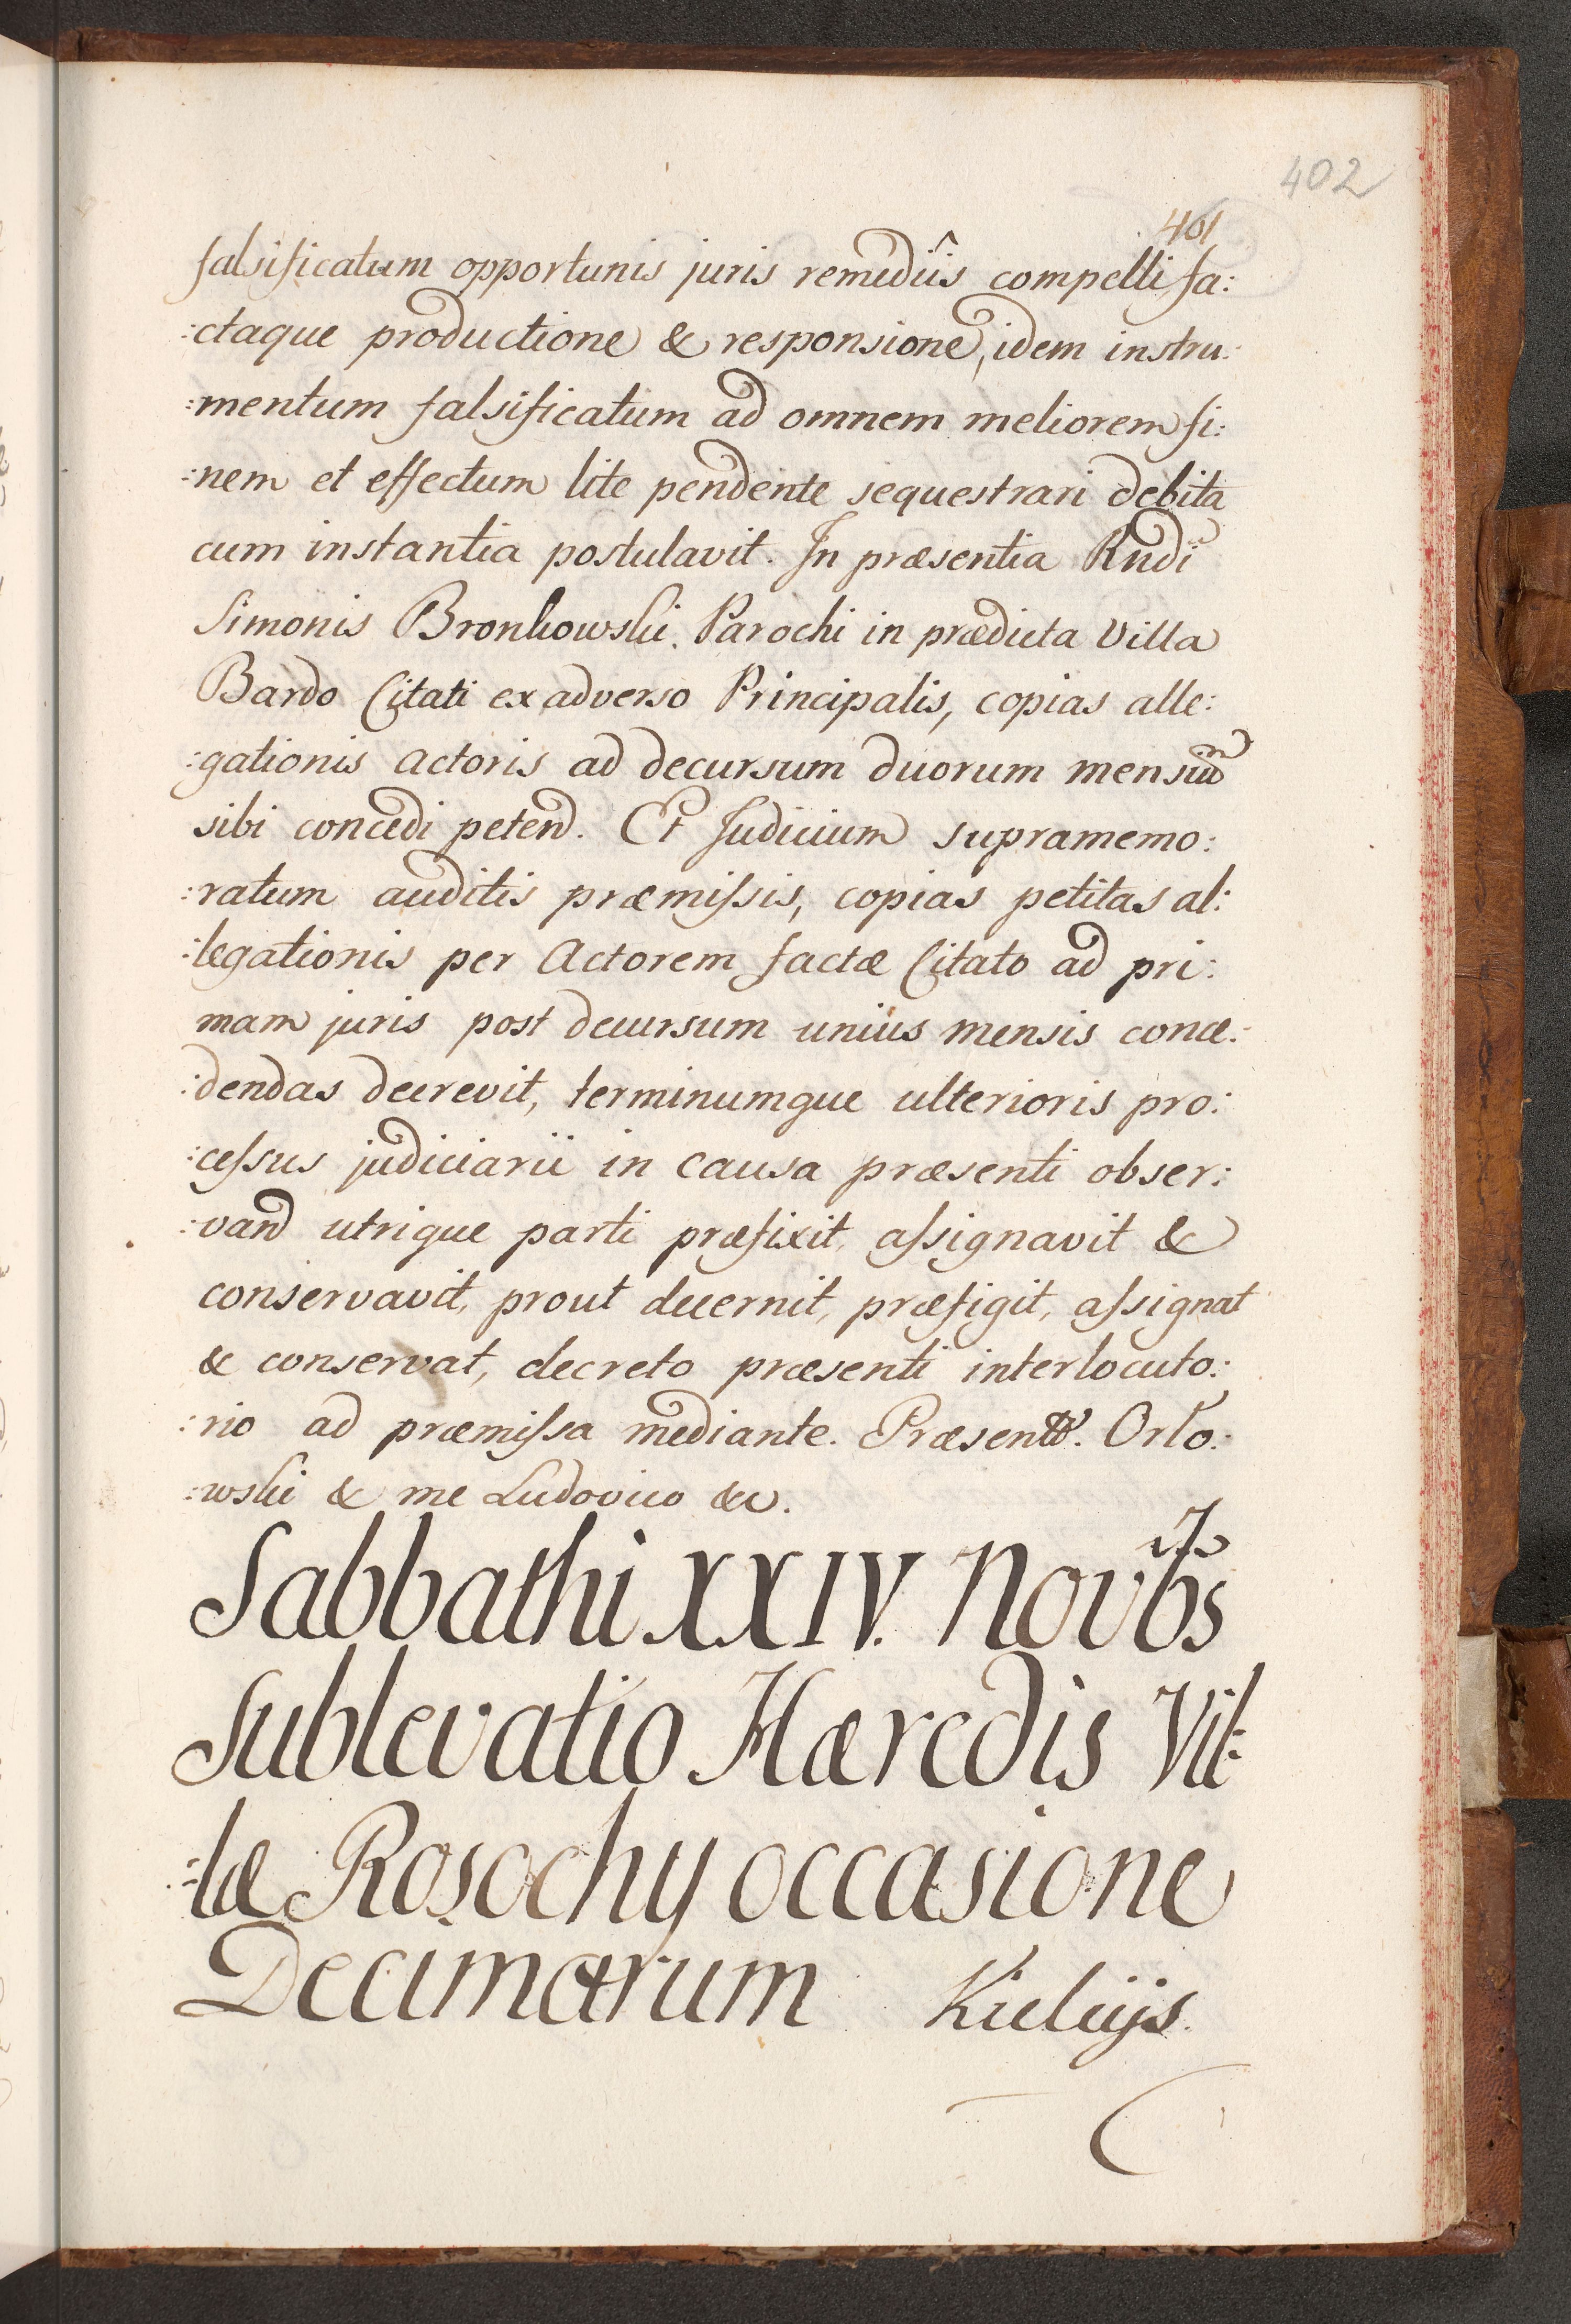 402
401
falsificatum opportunis juris remediis compelli, fa:
:ctaque productione & responsione, idem instru:
:mentum falsificatum ad omnem meliorem fi:
:nem et effectum lite pendente sequestrari debita
cum instantia postulavit. In præsentia Rndi
Simonis Bronkowski. Parochi in prædicta Villa
Bardo Citati ex adverso Principalis, copias alle:
:gationis Actoris ad decursum duorum mensium
sibi concedi petend. Et Judicium supramemo:
:ratum auditis præmissis, copias petitas al:
:legationis per Actorem factæ Citato ad pri:
mam juris post decursum unius mensis conce:
:dendas decrevit, terminumque ulterioris pro:
:cessus judiciarii in causa præsenti obser:
:vand utrique parti præfixit, assignavit &
conservavit, prout decernit, præfigit, assignat
& conservat, decreto præsenti interlocuto:
:rio ad præmissa mediante. Præsentt. Orlo:
:wski & me Ludovico &c.
Sabbathi XXIV. Novbris
Sublevatio Hæredis Vil:
:læ Rosochy occasione
Decimarum Kielcijs.